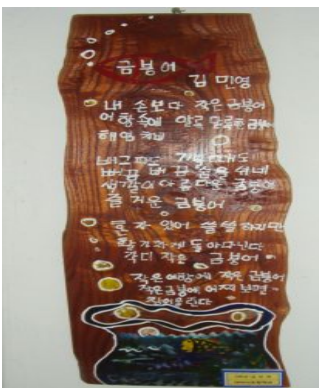 금붕어
김민영
내 손보다 작은 금붕어
어항속에 알록달록한 금붕어
헤엄쳐
배고파도
뻐끔 뻐끔 숨을 쉬네
색깔이 아름다운 금붕어
즐거운 금붕어
혼자 있어 쓸쓸하지만
활기차게 돌아다닌다
작디 작은 금붕어
작은 어항에 작은 금붕어
작은 금붕어 어찌보면